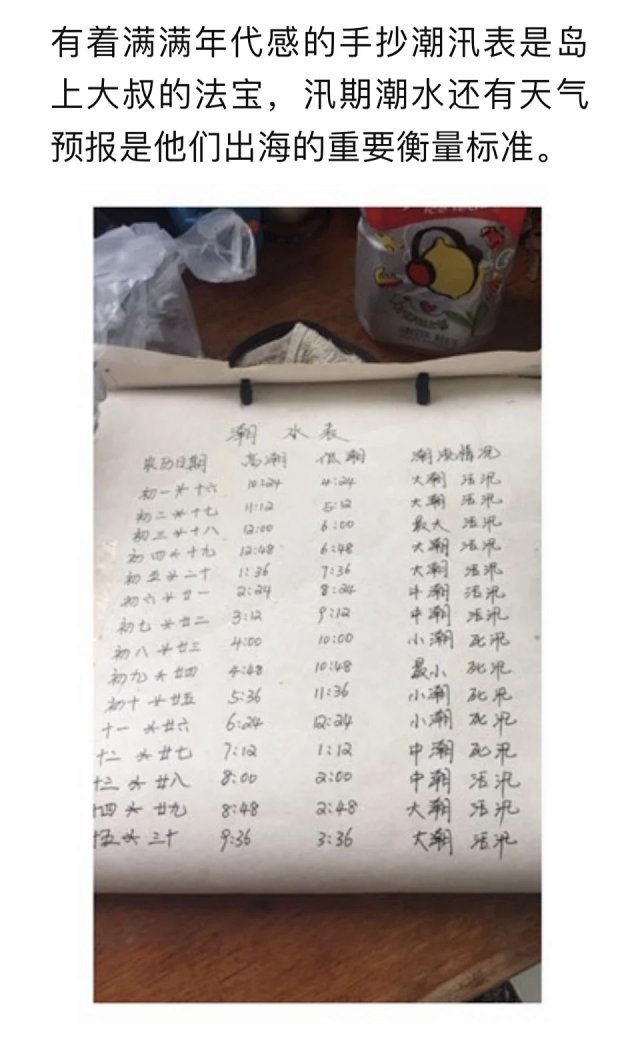 有着满满年代感的手抄潮汛表是岛
上大叔的法宝，汛期潮水还有天气
预报是他们出海的重要衡量标准。
潮 水 表
农历日期 高潮 低潮 潮汛情况
初一 十六 10:24 4:24 大潮 活汛
初二 十七 11:12 5:12 大潮 活汛
初三 十八 12:00 6:00 最大 活汛
初四 十九 12:48 6:48 大潮 活汛
初五 二十 1:36 7:36 大潮 活汛
初六 廿一 2:24 8:24 中潮 活汛
初七 廿二 3:12 9:12 中潮 活汛
初八 廿三 4:00 10:00 小潮 死汛
初九 廿四 4:48 10:48 最小 死汛
初十 廿五 5:36 11:36 小潮 死汛
十一 廿六 6:24 12:24 小潮 死汛
十二 廿七 7:12 1:12 中潮 死汛
十三 廿八 8:00 2:00 中潮 活汛
十四 廿九 8:48 2:48 大潮 活汛
十五 三十 9:36 3:36 大潮 活汛